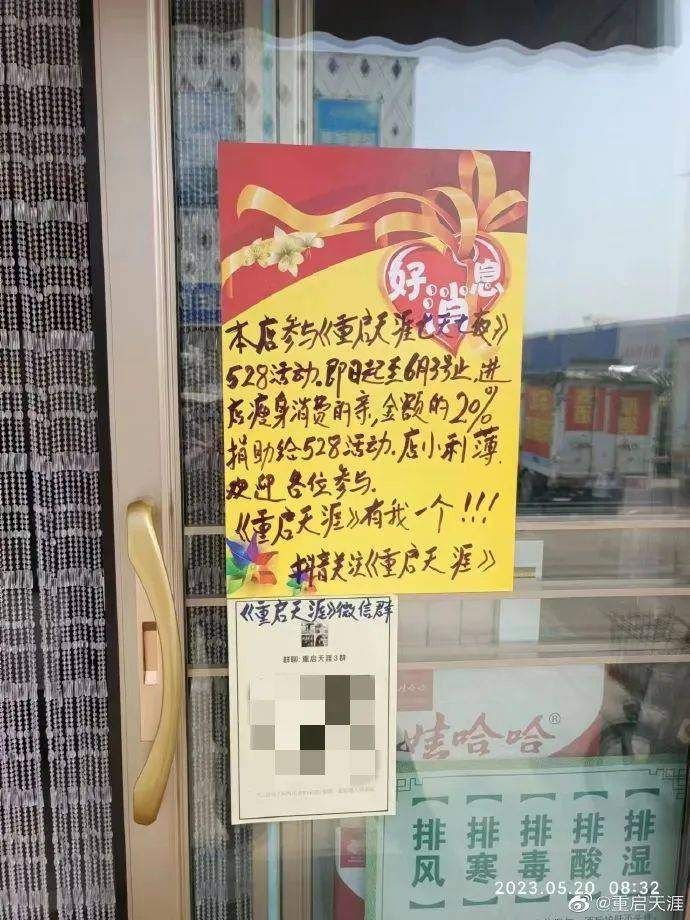 好消息
本店参与《重启天涯七天七夜》
528活动.即日起至6月3号止,进
店瘦身消费的亲,金额的20%
捐助给528活动.店小利薄.
欢迎各位参与.
《重启天涯》有我一个!!!
抖音关注《重启天涯》
《重启天涯》微信群
群聊: 重启天涯3群
娃哈哈®
【排风】
【排寒】
【排毒】
【排酸】
【排湿】
2023.05.20 08:32
@重启天涯